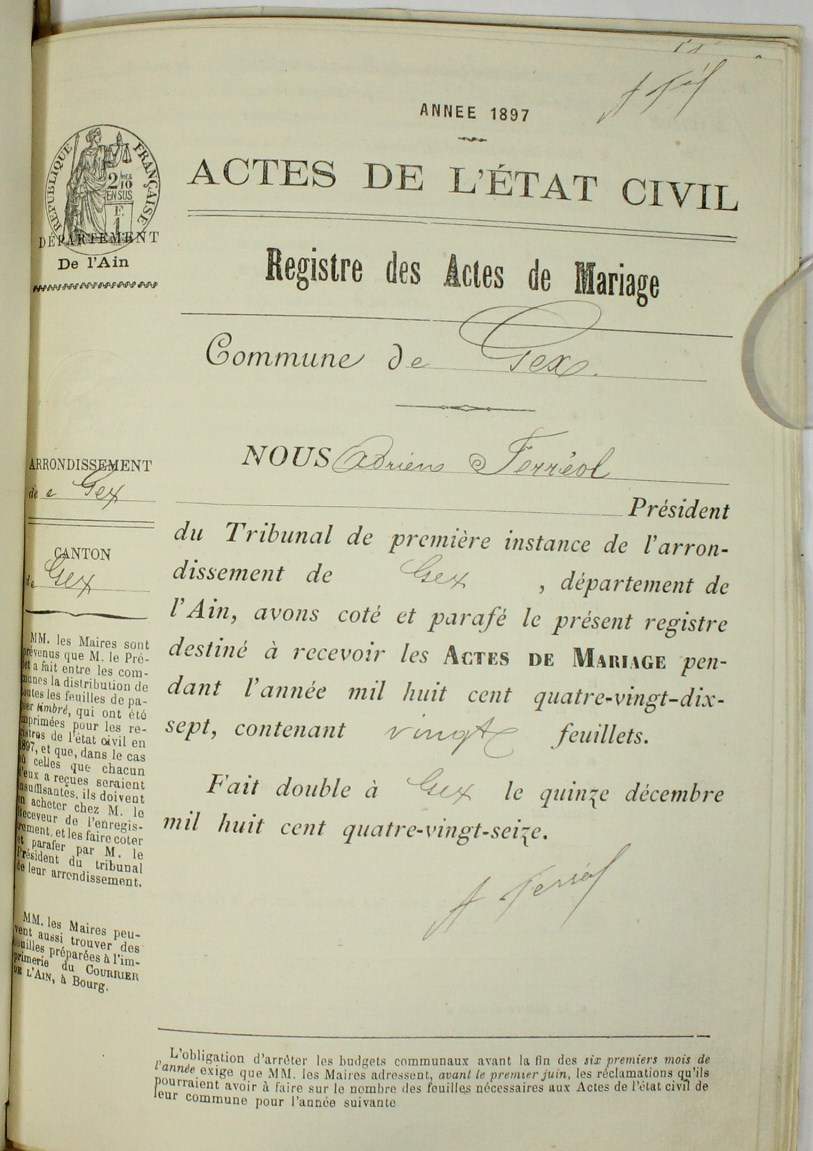 ANNEE 1897
ACTES DE L'ÉTAT CIVIL
RÉPUBLIQUE FRANÇAISE
2/10
EN SUS
F.
1
DÉPARTEMENT
De l'Ain
Registre des Actes de Mariage
Commune de Gex.
ARRONDISSEMENT
de Gex
CANTON
de Gex
NOUS Adrien Ferréol
Président
du Tribunal de première instance de l'arron-
dissement de Gex, département de
l'Ain, avons coté et parafé le présent registre
destiné à recevoir les ACTES DE MARIAGE pen-
dant l'année mil huit cent quatre-vingt-dix-
sept, contenant vingt feuillets.
Fait double à Gex le quinze décembre
mil huit cent quatre-vingt-seize.
A Ferréol
MM. les Maires sont
prévenus que M. le Pré-
fet a fait entre les com-
munes la distribution de
toutes les feuilles de pa-
pier timbré, qui ont été
imprimées pour les re-
gistres de l'état civil en
1897, et que, dans le cas
où celles que chacun
d'eux a reçues seraient
insuffisantes, ils doivent
en acheter chez M. le
Receveur de l'enregis-
trement, et les faire coter
et parafer par M. le
Président du tribunal
de leur arrondissement.
MM. les Maires peu-
vent aussi trouver des
feuilles préparées à l'im-
primerie du COURRIER
DE L'AIN, à Bourg.
L'obligation d'arrêter les budgets communaux avant la fin des six premiers mois de
l'année exige que MM. les Maires adressent, avant le premier juin, les réclamations qu'ils
pourraient avoir à faire sur le nombre des feuilles nécessaires aux Actes de l'état civil de
leur commune pour l'année suivante